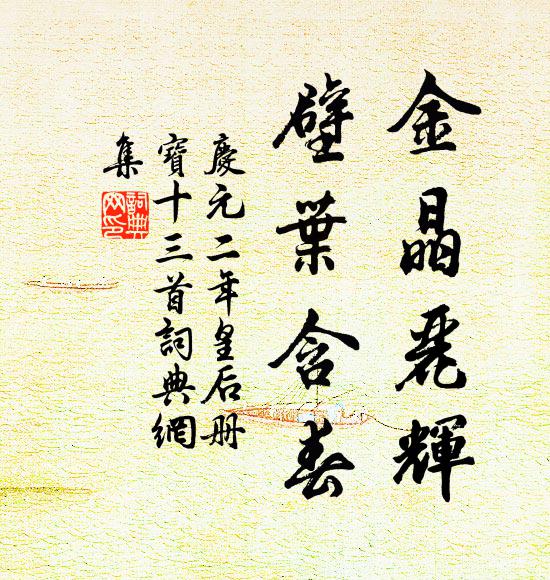 金晶麗輝
壁葉含春
慶元二年皇后册
寶十三首詞典網
集
詞典
網印